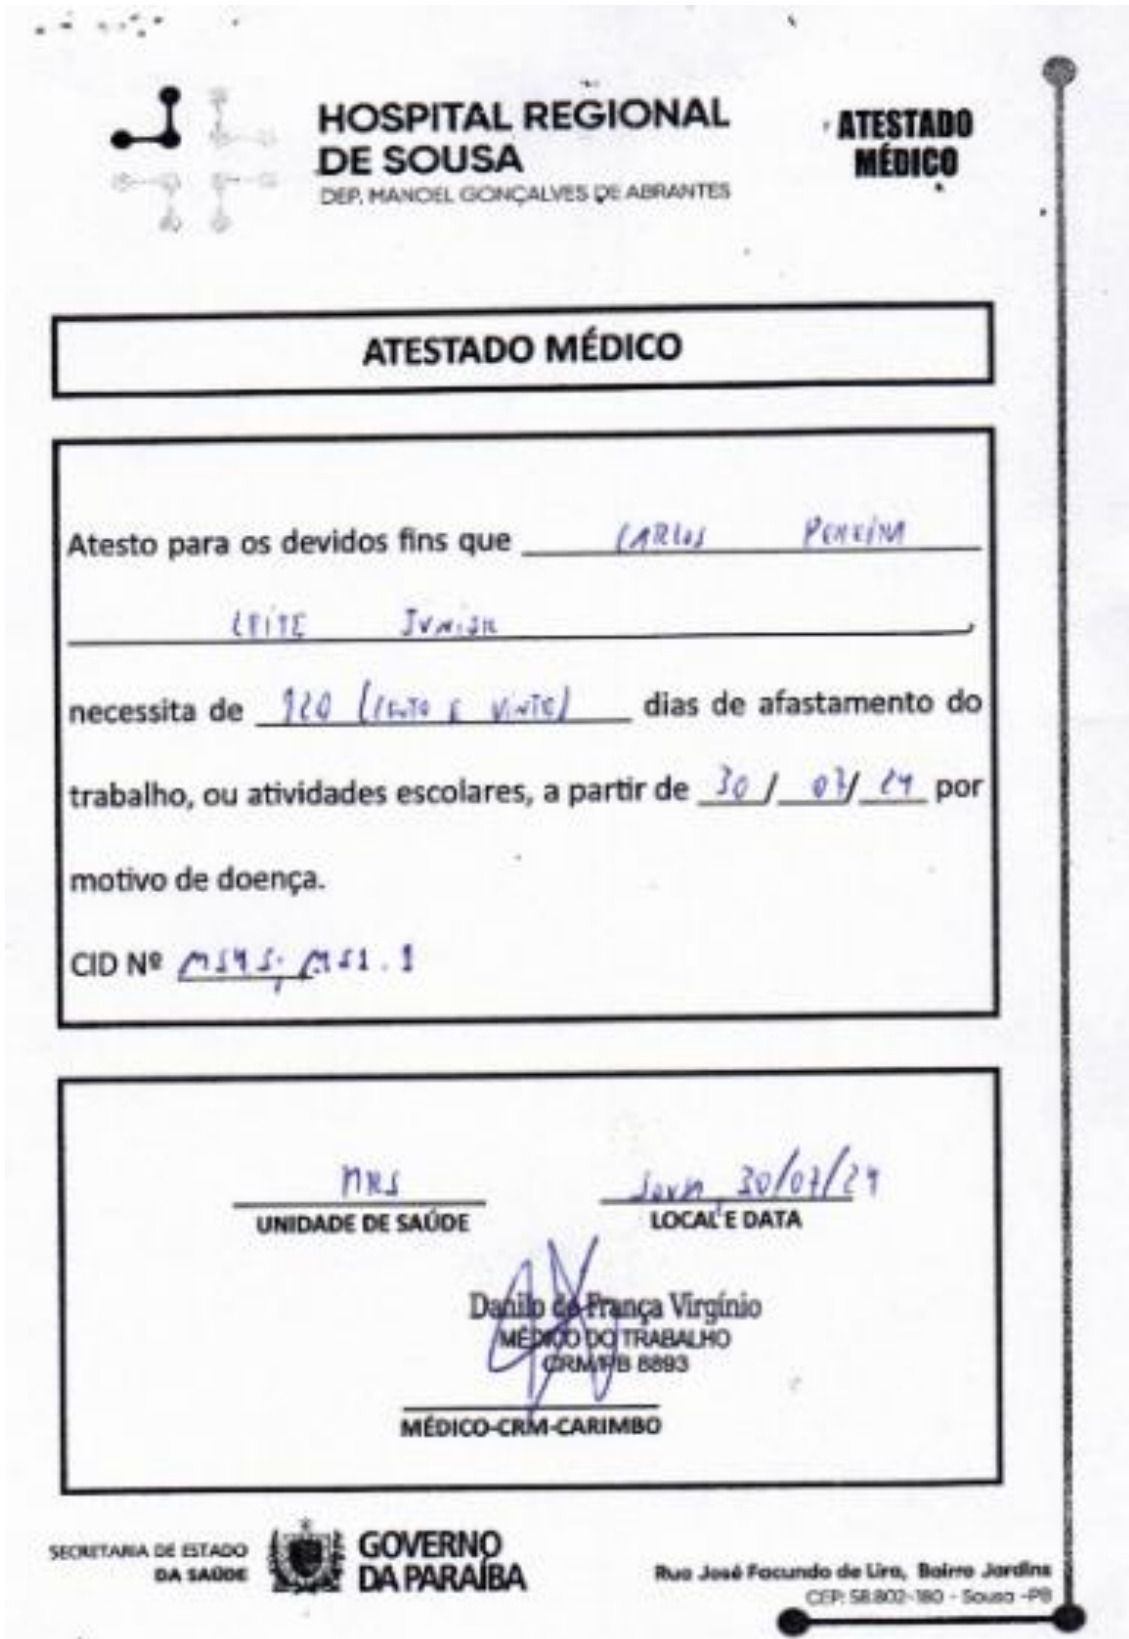 HOSPITAL REGIONAL
DE SOUSA
DEP. MANOEL GONÇALVES DE ABRANTES
ATESTADO
MÉDICO
ATESTADO MÉDICO
Atesto para os devidos fins que CARLOS PEREIRA
LEITE JUNIOR,
necessita de 120 (CENTO E VINTE) dias de afastamento do
trabalho, ou atividades escolares, a partir de 30/07/24 por
motivo de doença.
CID Nº M545; M51.1
HRS
UNIDADE DE SAÚDE
Sousa, 30/07/24
LOCAL E DATA
Danilo de França Virgínio
MÉDICO DO TRABALHO
CRM/PB 8893
MÉDICO-CRM-CARIMBO
SECRETARIA DE ESTADO
DA SAÚDE
GOVERNO
DA PARAÍBA
Rua José Facundo de Lira, Bairro Jardins
CEP: 58.802-180 - Sousa -PB